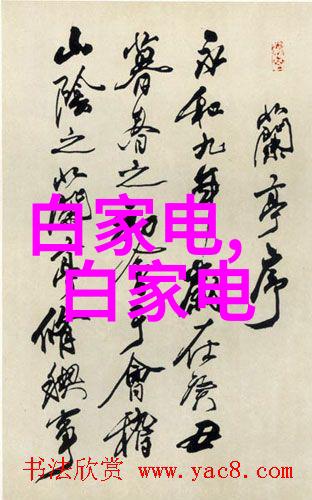 蘭亭序
永和九年歲在癸丑
暮春之初會于會稽
山陰之蘭亭脩禊事
白家电,
白家电
书法欣赏 www.yac8.com